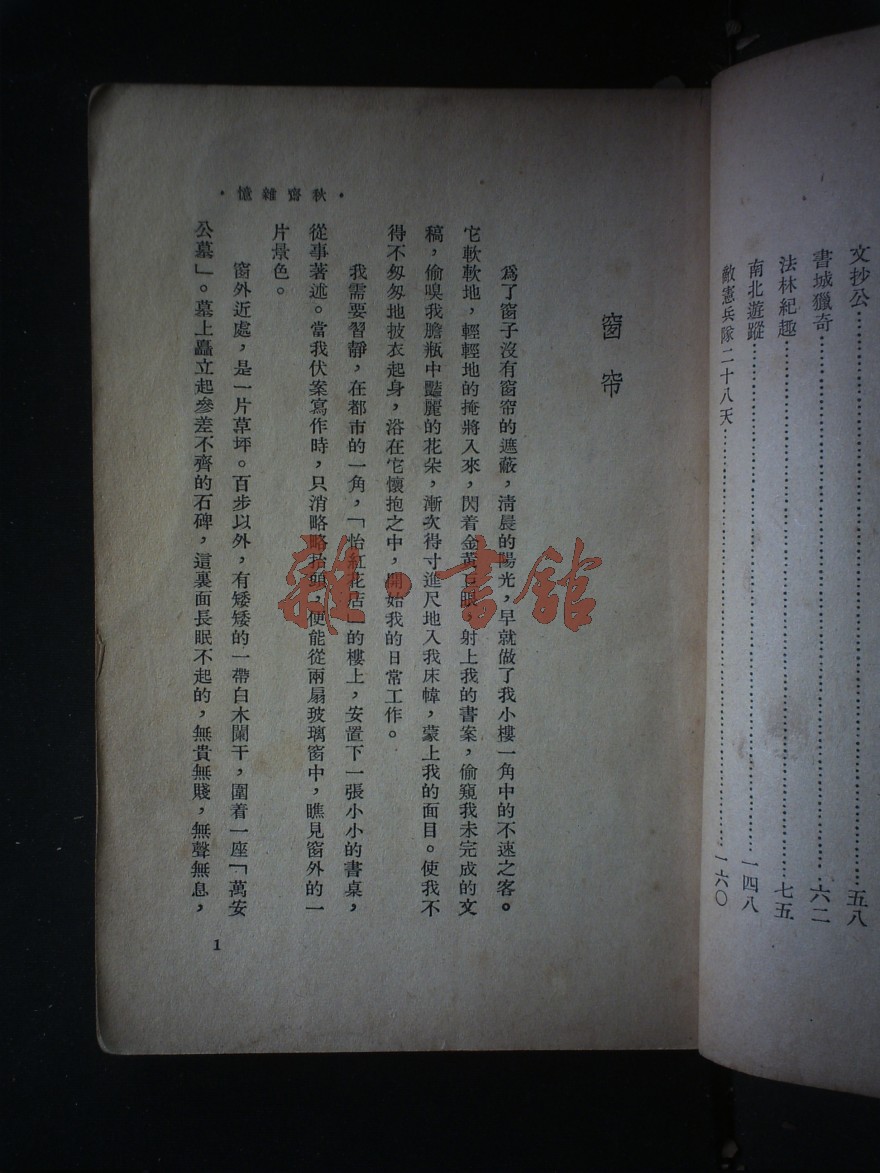 文抄公……五八
書城獵奇……六二
法林紀趣……七五
南北遊蹤……一四八
敵憲兵隊二十八天……一六〇
・秋齋雜憶・
窗帘
爲了窗子沒有窗帘的遮蔽，淸晨的陽光，早就做了我小樓一角中的不速之客。
它軟軟地，輕輕地的掩將入來，閃着金黃色眼，射上我的書案，偷窺我未完成的文
稿，偷嗅我膽瓶中豔麗的花朵，漸次得寸進尺地入我床幃，蒙上我的面目。使我不
得不匆匆地披衣起身，浴在它懷抱之中，開始我的日常工作。
我需要習靜，在都市的一角，「怡紅花店」的樓上，安置下一張小小的書桌，
從事著述。當我伏案寫作時，只消略略抬頭，便能從兩扇玻璃窗中，瞧見窗外的一
片景色。
窗外近處，是一片草坪。百步以外，有矮矮的一帶白木闌干，圍着一座「萬安
公墓」。墓上矗立起參差不齊的石碑，這裏面長眠不起的，無貴無賤，無聲無息，
1
雜·書館